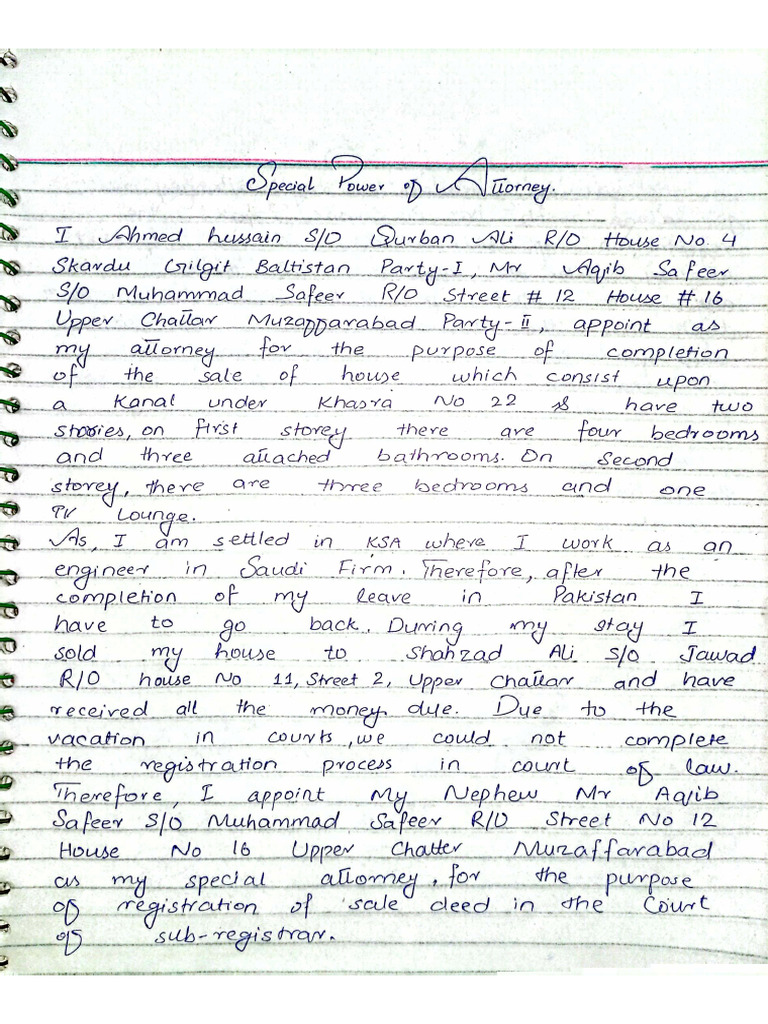 Special Power of Attorney.
I Ahmed hussain S/O Qurban Ali R/O House No. 4
Skardu Gilgit Baltistan Party-I, Mr Aqib Safeer
S/O Muhammad Safeer R/O Street # 12 House # 16
Upper Chattar Muzaffarabad Party-II, appoint as
my attorney for the purpose of completion
of the sale of house which consist upon
a Kanal under Khasra No 22 & have two
stories, on first storey there are four bedrooms
and three attached bathrooms. On second
storey, there are three bedrooms and one
TV Lounge.
As, I am settled in KSA where I work as an
engineer in Saudi Firm. Therefore, after the
completion of my leave in Pakistan I
have to go back. During my stay I
sold my house to Shahzad Ali S/O Jawad
R/O house No 11, Street 2, Upper Chattar and have
received all the money due. Due to the
vacation in courts, we could not complete
the registration process in court of law.
Therefore, I appoint My Nephew Mr Aqib
Safeer S/O Muhammad Safeer R/O Street No 12
House No 16 Upper Chatter Muzaffarabad
as my special attorney, for the purpose
of registration of sale deed in the Court
of sub-registrar.